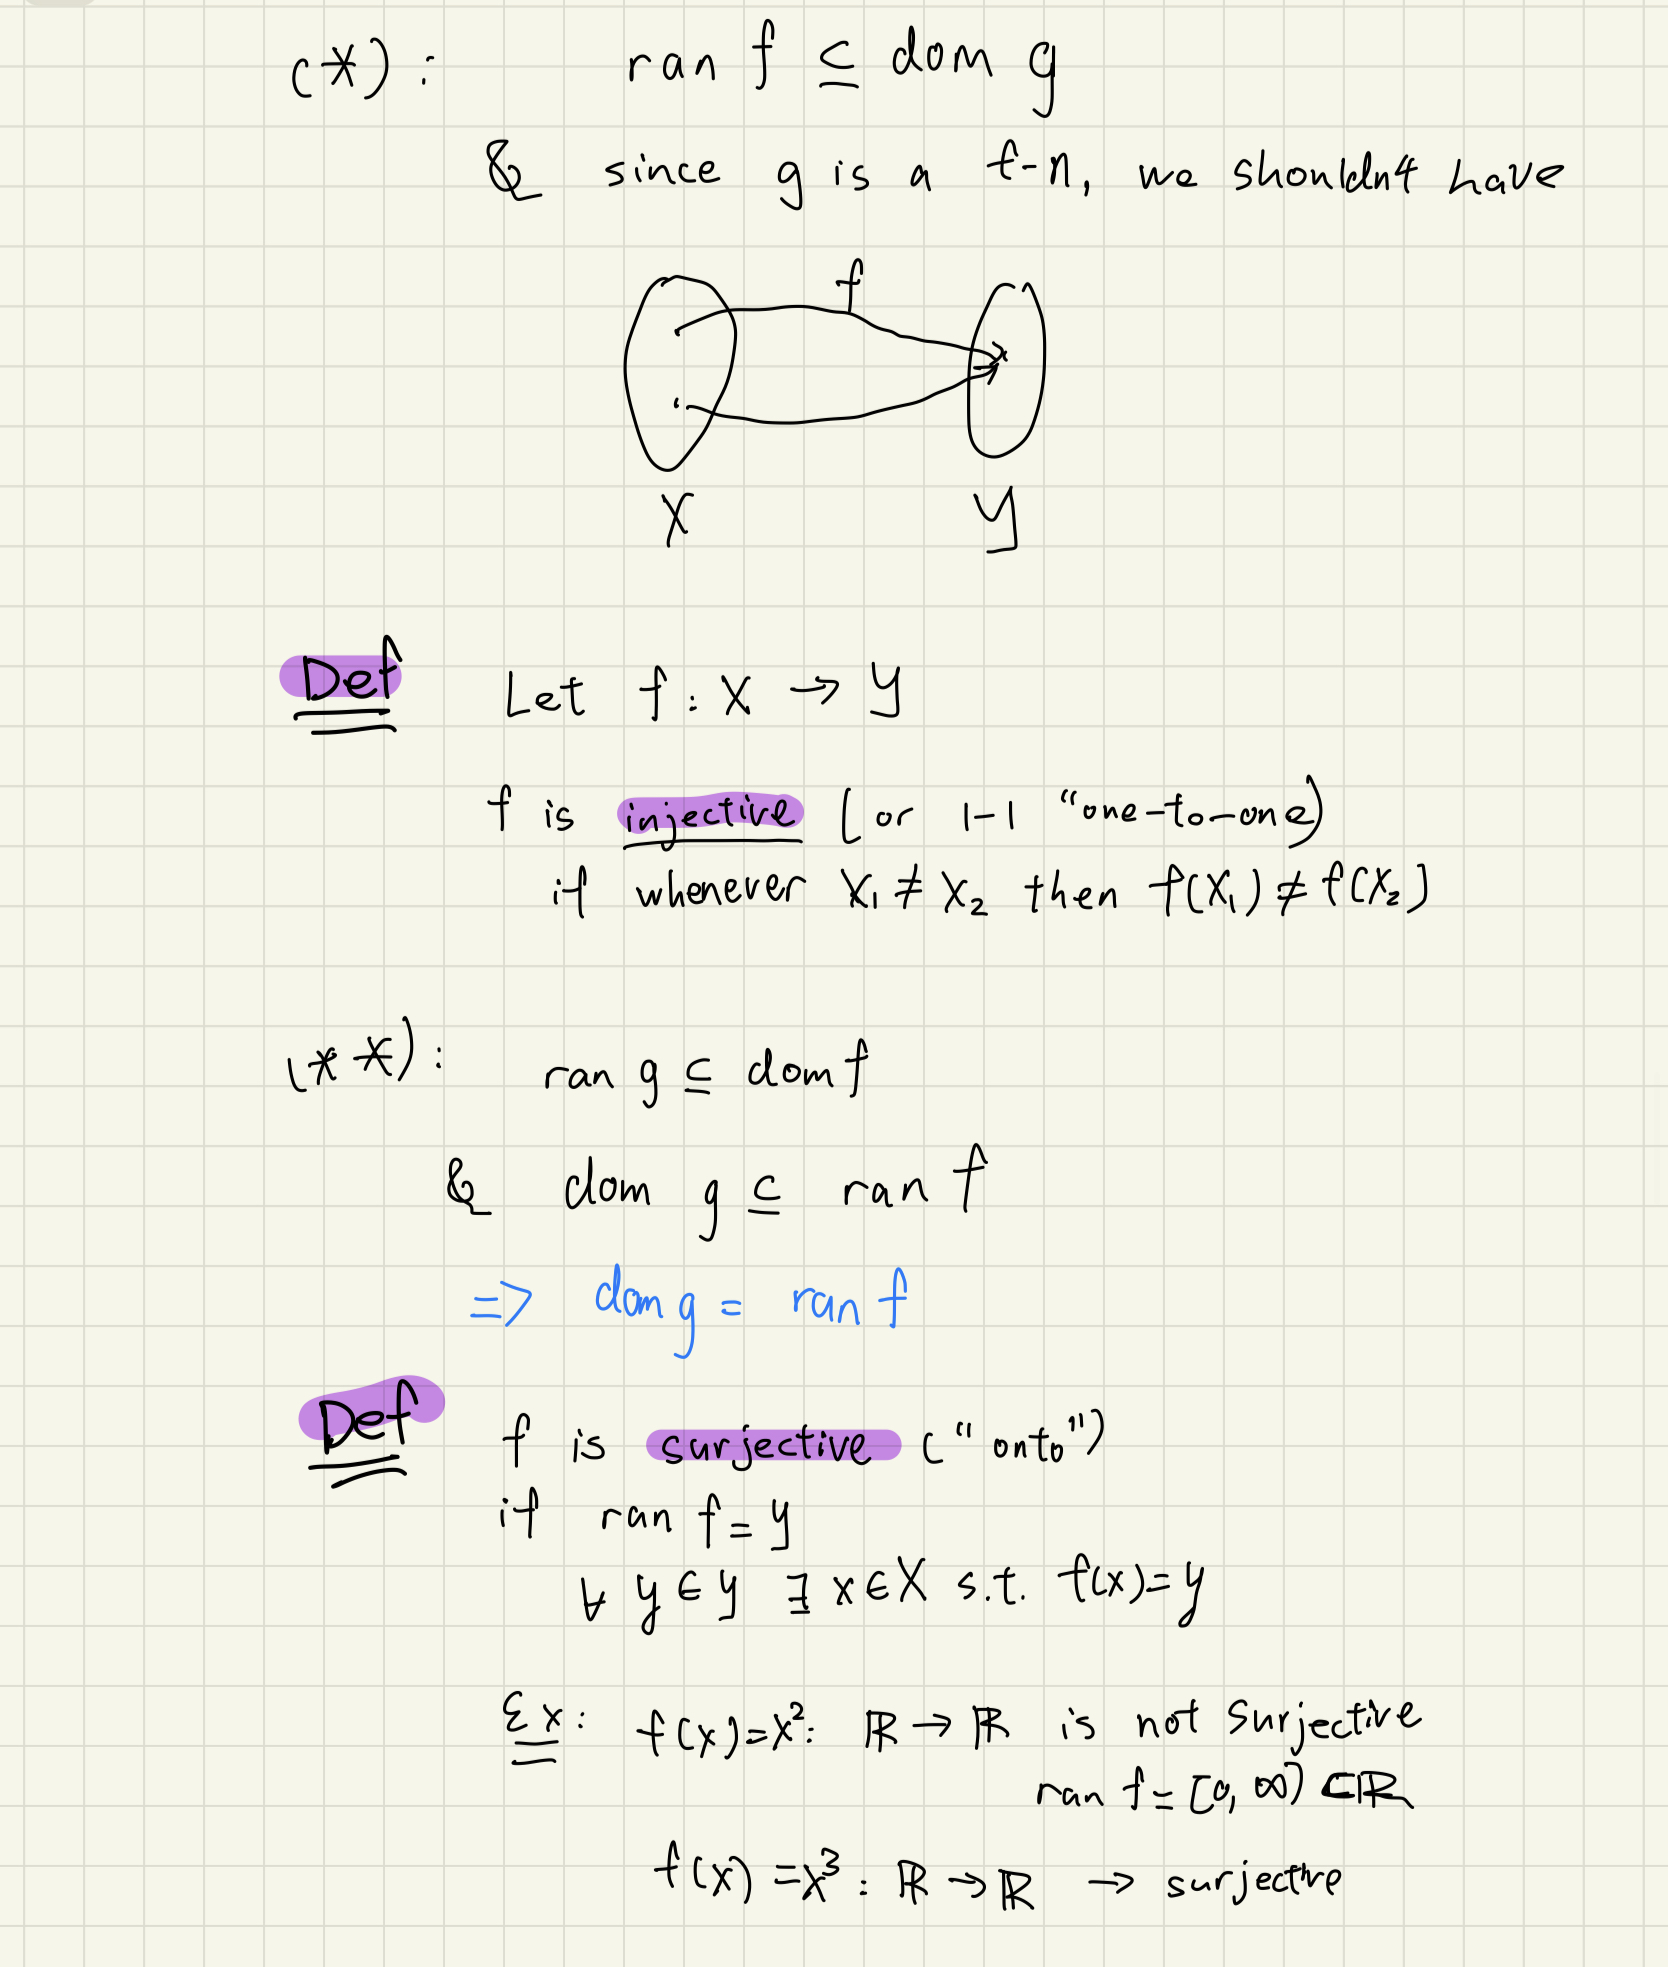 (*): ran f ⊆ dom g
& since g is a f-n, we shouldn't have
f
X Y
Def Let f: X → Y
f is injective (or 1-1 "one-to-one)
if whenever X₁ ≠ X₂ then f(X₁) ≠ f(X₂)
(**): ran g ⊆ dom f
& dom g ⊆ ran f
=> dom g = ran f
Def f is surjective ("onto")
if ran f = Y
∀ y ∈ Y ∃ x ∈ X s.t. f(x) = y
Ex: f(x) = x²: ℝ → ℝ is not surjective
ran f = [0, ∞) ⊂ ℝ
f(x) = x³: ℝ → ℝ → surjective